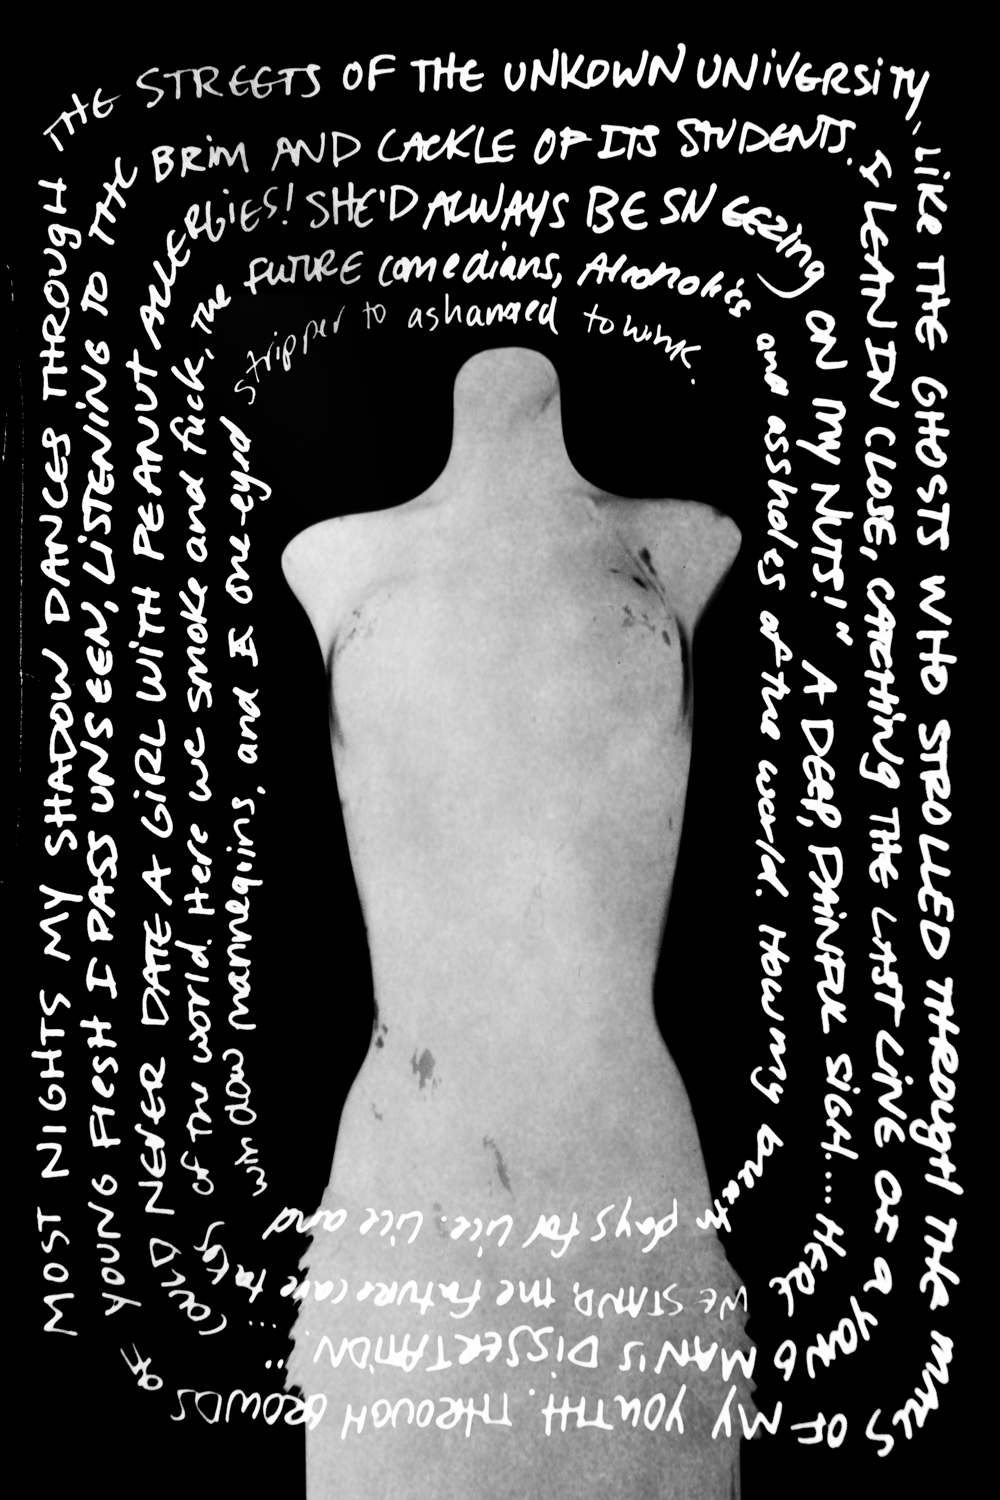 MOST NIGHTS MY SHADOW DANCES THROUGH
THE STREETS OF THE UNKOWN UNIVERSITY,
LIKE THE GHOSTS WHO STROLLED THROUGH THE
OF MY YOUTH. THROUGH CROWDS OF
YOUNG FLESH I PASS UNSEEN, LISTENING TO THE
BRIM AND CACKLE OF ITS STUDENTS.
I LEAN IN CLOSE, CATCHING THE LAST LINE OF A YOUNG
MAN'S DISSERTATION. ...
COULD NEVER DATE A GIRL WITH PEANUT
ALLERGIES! SHE'D ALWAYS BE SNEEZING
ON MY NUTS!" A DEEP, PAINFUL SIGH.... HERE
WE STAND, the future care takers
of the world. Here we smoke and fuck, the
future comedians, Alcoholics
and assholes of the world. How my
pays for vice. vice and
window mannequins, and a one-eyed
stripper to ashamed to wink.